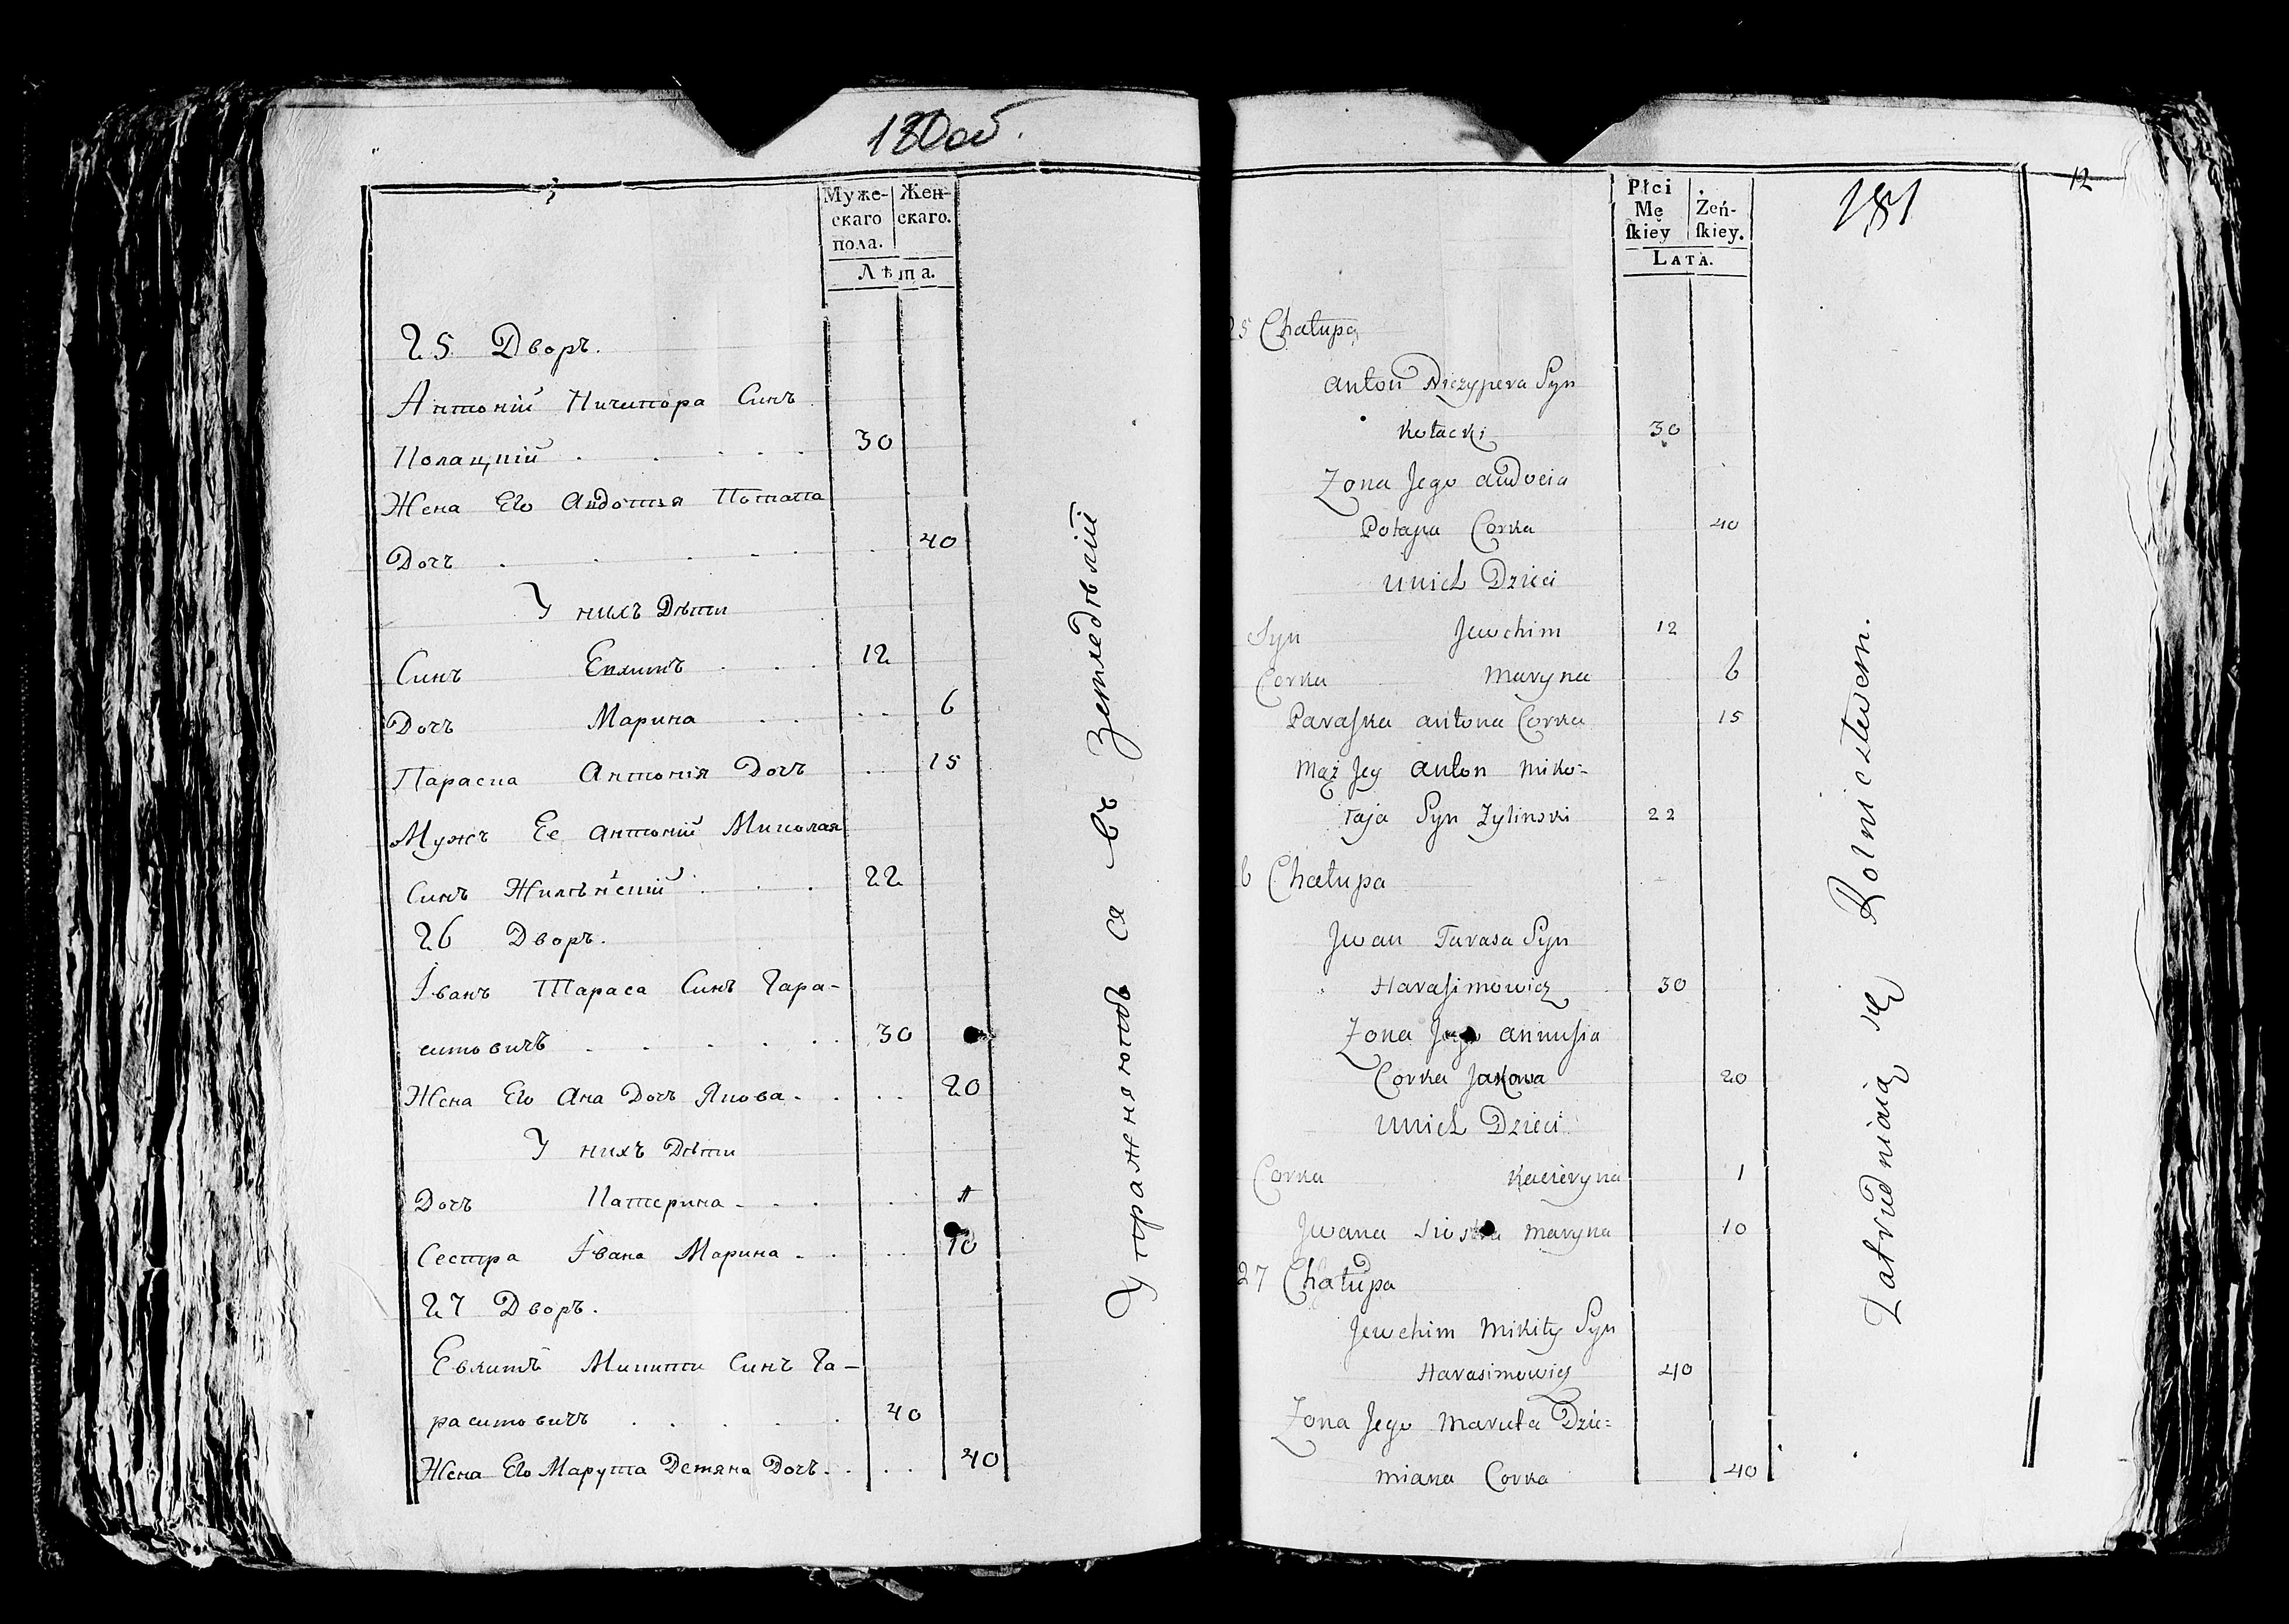 180об.
Муже-
скаго
пола.
Жен-
скаго.
Лѣта.
25 Дворъ.
Антоній Ничипора Синъ
Колацкій 30
Жена Его Авдотья Потапа
Дочъ 40
У нихъ Дѣти
Синъ Евхимъ 12
Дочъ Марина 6
Параска Антонія Дочъ 15
Мужъ Ее Антоній Миколая
Синъ Жилѣнскій 22
26 Дворъ.
Іванъ Тараса Синъ Гара-
симовичъ 30
Жена Его Ана Дочъ Якова 20
У нихъ Дѣти
Дочъ Катерина 1
Сестра Івана Марина 10
27 Дворъ.
Евхимъ Микити Синъ Га-
расимовичъ 40
Жена Его Марута Демяна Дочъ 40
Упражняютъ ся въ Земледѣліи
12
181
Płci
Mę
ſkiey
Żeń-
ſkiey.
LATA.
25 Chałupa
Anton Niczypera Syn
Kołacki 30
Zona Jego Audocia
Potapa Corka 40
unich Dzieci
Syn Jewchim 12
Corka Maryna 6
Paraſka Antona Corka 15
Mąż Jey Anton Miko-
łaja Syn Zylinski 22
6 Chałupa
Jwan Tarasa Syn
Haraſimowicz 30
Zona Jego Annuſia
Corka Jakowa 20
unich Dzieci
Corka Kacieryna 1
Jwana Siostra Maryna 10
27 Chałupa
Jewchim Mikity Syn
Harasimowicz 40
Zona Jego Maruta Dzie-
miana Corka 40
Zatrudniaią się Rolnictwem.